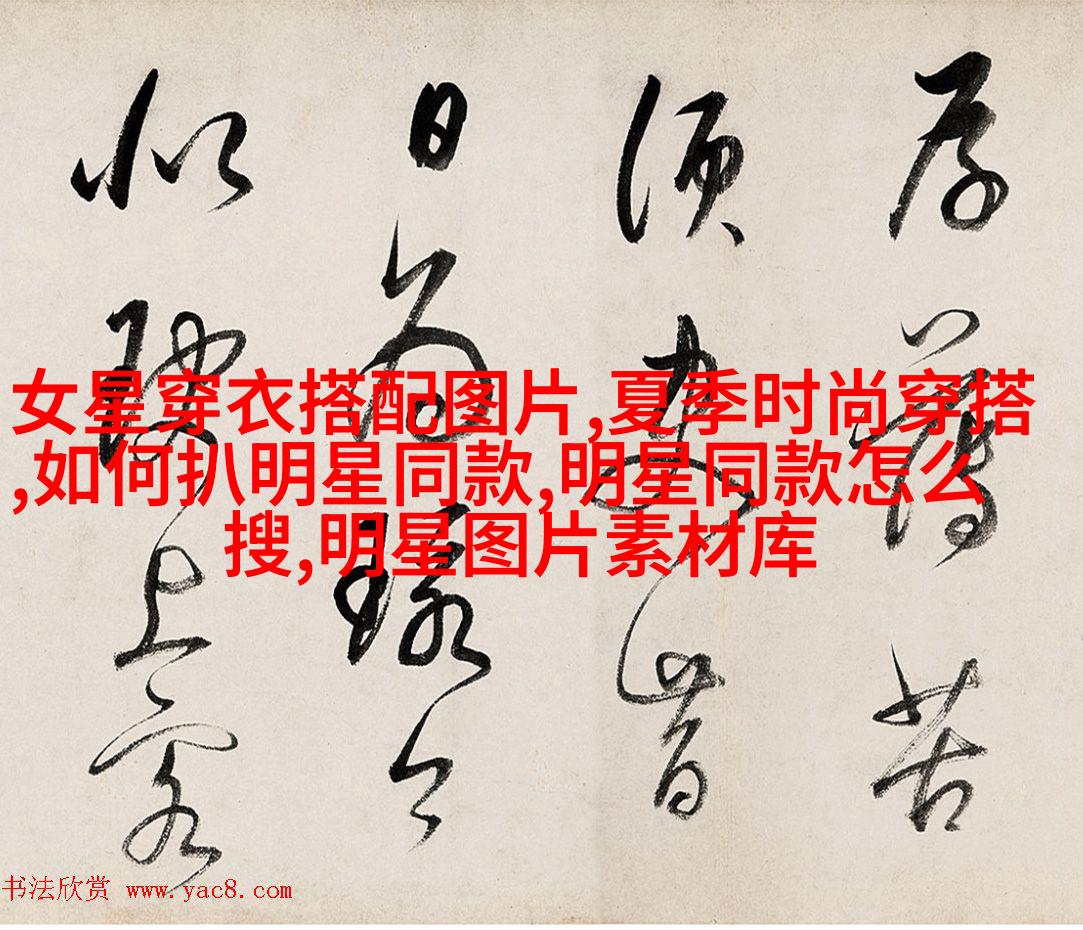 女星穿衣搭配图片,夏季时尚穿搭
,如何扒明星同款,明星同款怎么
搜,明星图片素材库
薄苦
須
日為
上客
书法欣赏 www.yac8.com